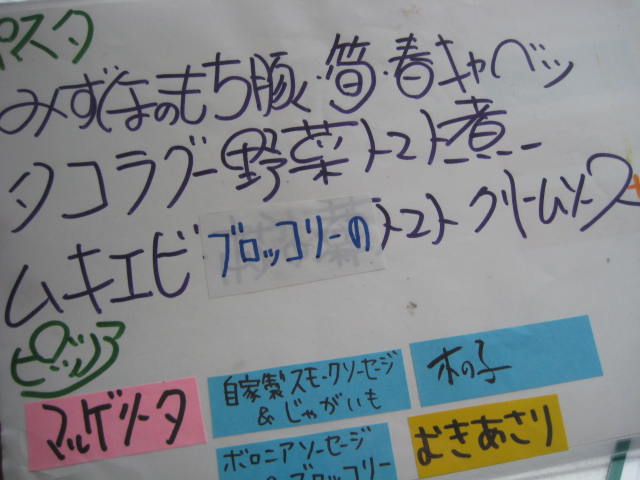 パスタ
みずなのもち豚・筍・春キャベツ
タコラグー野菜トマト煮
ムキエビブロッコリーのトマトクリームソース
ピッツァ
マルゲリータ
自家製スモークソーセージ
&じゃがいも
木の子
ボロニアソーセージ
&ブロッコリー
むきあさり